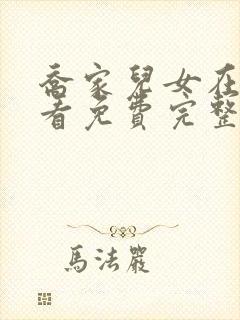 喬家兒女在
看免費完整
馬法嚴